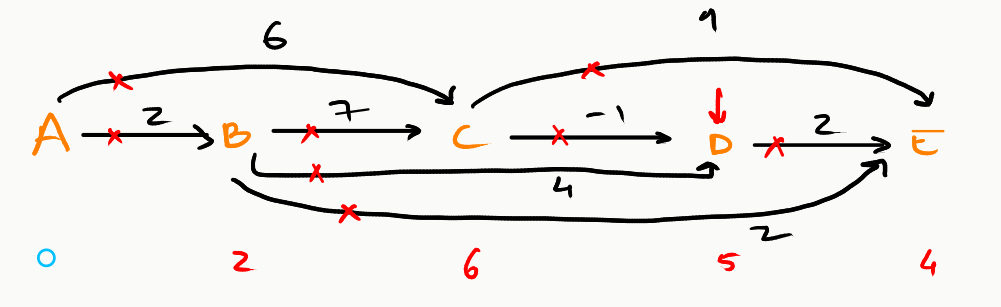 6 1
A 2 B 7 C -1 D 2 E
4
2
0 2 6 5 4